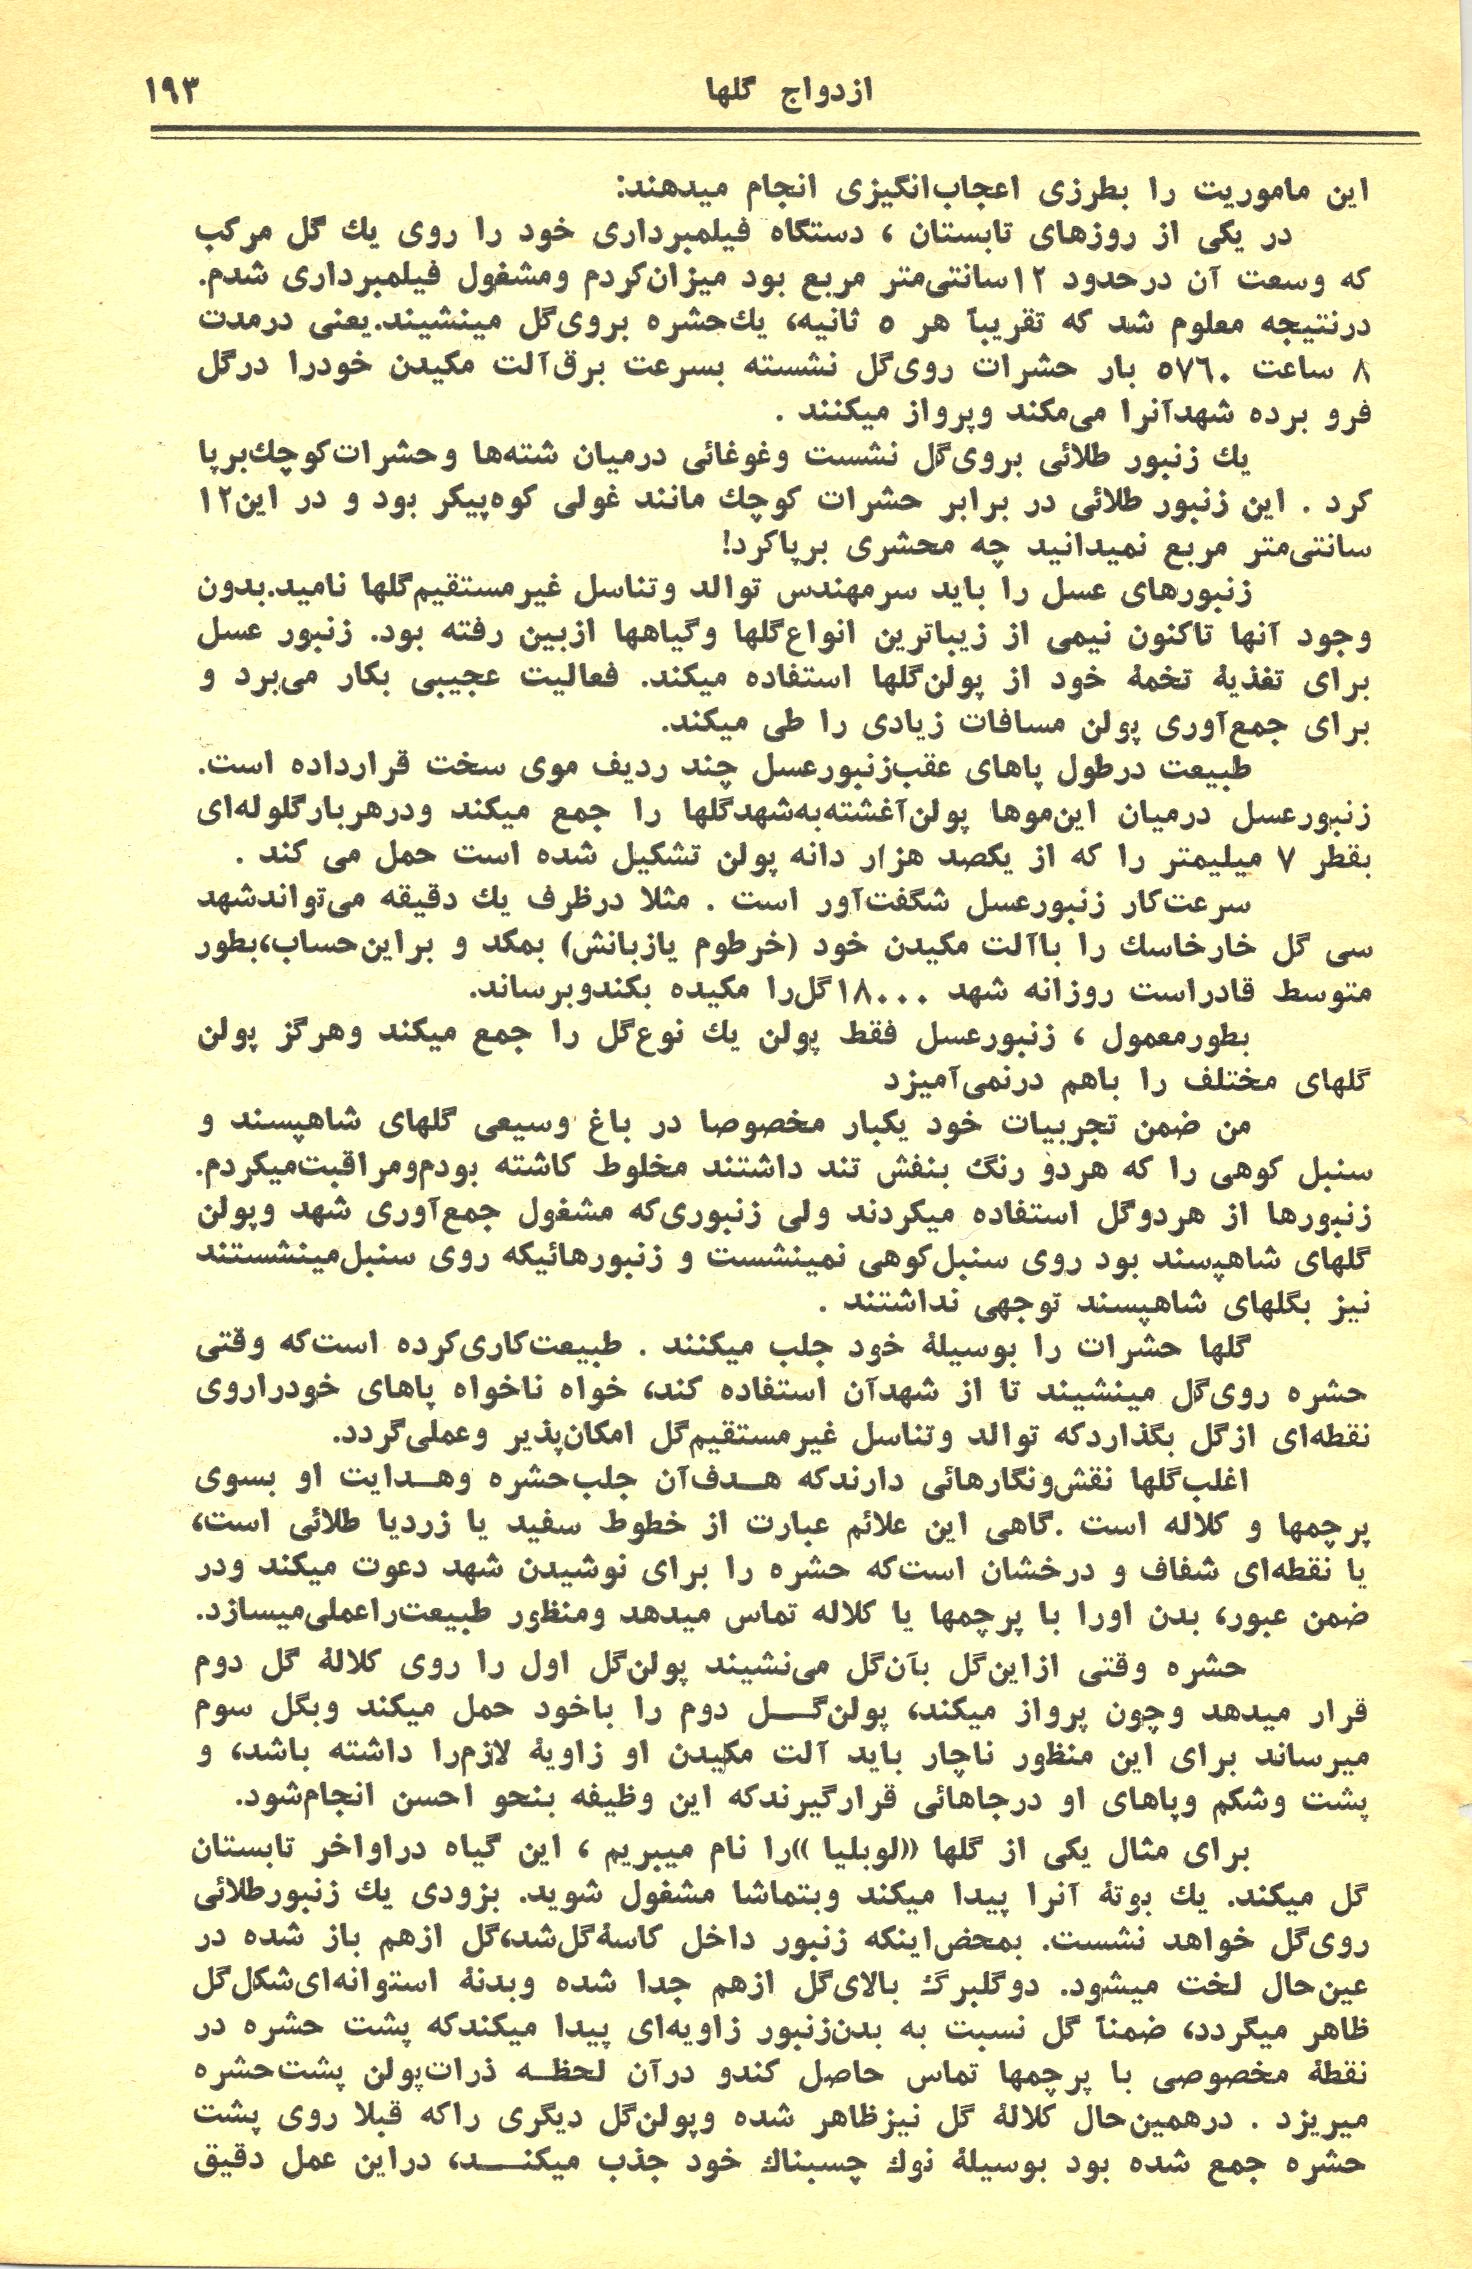 ازدواج گلها ۱۹۳
این ماموریت را بطرزی اعجاب‌انگیزی انجام میدهند:
در یکی از روزهای تابستان ، دستگاه فیلمبرداری خود را روی یك گل مرکب
که وسعت آن درحدود ۱۲سانتی‌متر مربع بود میزان‌کردم ومشغول فیلمبرداری شدم.
درنتیجه معلوم شد که تقریباً هر ۵ ثانیه، یك‌حشره بروی‌گل مینشیند.یعنی درمدت
۸ ساعت ۵۷۶۰ بار حشرات روی‌گل نشسته بسرعت برق‌آلت مکیدن خودرا درگل
فرو برده شهدآنرا می‌مکند وپرواز میکنند .
یك زنبور طلائی بروی‌گل نشست وغوغائی درمیان شته‌ها وحشرات‌کوچك‌برپا
کرد . این زنبور طلائی در برابر حشرات کوچك مانند غولی کوه‌پیکر بود و در این۱۲
سانتی‌متر مربع نمیدانید چه محشری برپاکرد!
زنبورهای عسل را باید سرمهندس توالد وتناسل غیرمستقیم‌گلها نامید.بدون
وجود آنها تاکنون نیمی از زیباترین انواع‌گلها وگیاهها ازبین رفته بود. زنبور عسل
برای تغذیهٔ تخمهٔ خود از پولن‌گلها استفاده میکند. فعالیت عجیبی بکار می‌برد و
برای جمع‌آوری پولن مسافات زیادی را طی میکند.
طبیعت درطول پاهای عقب‌زنبورعسل چند ردیف موی سخت قرارداده است.
زنبورعسل درمیان این‌موها پولن‌آغشته‌به‌شهدگلها را جمع میکند ودرهربارگلوله‌ای
بقطر ۷ میلیمتر را که از یکصد هزار دانه پولن تشکیل شده است حمل می کند .
سرعت‌کار زنبورعسل شگفت‌آور است . مثلا درظرف یك دقیقه می‌تواندشهد
سی گل خارخاسك را باآلت مکیدن خود (خرطوم یازبانش) بمکد و براین‌حساب،بطور
متوسط قادراست روزانه شهد ۱۸۰۰۰گل‌را مکیده بکندوبرساند.
بطورمعمول ، زنبورعسل فقط پولن یك نوع‌گل را جمع میکند وهرگز پولن
گلهای مختلف را باهم درنمی‌آمیزد
من ضمن تجربیات خود یکبار مخصوصا در باغ وسیعی گلهای شاهپسند و
سنبل کوهی را که هردو رنگ بنفش تند داشتند مخلوط کاشته بودم‌ومراقبت‌میکردم.
زنبورها از هردوگل استفاده میکردند ولی زنبوری‌که مشغول جمع‌آوری شهد وپولن
گلهای شاهپسند بود روی سنبل‌کوهی نمینشست و زنبورهائیکه روی سنبل‌مینشستند
نیز بگلهای شاهپسند توجهی نداشتند .
گلها حشرات را بوسیلهٔ خود جلب میکنند . طبیعت‌کاری‌کرده است‌که وقتی
حشره روی‌گل مینشیند تا از شهدآن استفاده کند، خواه ناخواه پاهای خودراروی
نقطه‌ای ازگل بگذاردکه توالد وتناسل غیرمستقیم‌گل امکان‌پذیر وعملی‌گردد.
اغلب‌گلها نقش‌ونگارهائی دارندکه هـدف‌آن جلب‌حشره وهـدایت او بسوی
پرچمها و کلاله است .گاهی این علائم عبارت از خطوط سفید یا زردیا طلائی است،
یا نقطه‌ای شفاف و درخشان است‌که حشره را برای نوشیدن شهد دعوت میکند ودر
ضمن عبور، بدن اورا با پرچمها یا کلاله تماس میدهد ومنظور طبیعت‌راعملی‌میسازد.
حشره وقتی ازاین‌گل بآن‌گل می‌نشیند پولن‌گل اول را روی کلالهٔ گل دوم
قرار میدهد وچون پرواز میکند، پولن‌گـل دوم را باخود حمل میکند وبگل سوم
میرساند برای این منظور ناچار باید آلت مکیدن او زاویهٔ لازم‌را داشته باشد، و
پشت وشکم وپاهای او درجاهائی قرارگیرندکه این وظیفه بنحو احسن انجام‌شود.
برای مثال یکی از گلها ((لوبلیا ))را نام میبریم ، این گیاه دراواخر تابستان
گل میکند. یك بوتهٔ آنرا پیدا میکند وبتماشا مشغول شوید. بزودی یك زنبورطلائی
روی‌گل خواهد نشست. بمحض‌اینکه زنبور داخل کاسهٔ‌گل‌شد،گل ازهم باز شده در
عین‌حال لخت میشود. دوگلبرگ بالای‌گل ازهم جدا شده وبدنهٔ استوانه‌ای‌شکل‌گل
ظاهر میگردد، ضمناً گل نسبت به بدن‌زنبور زاویه‌ای پیدا میکندکه پشت حشره در
نقطهٔ مخصوصی با پرچمها تماس حاصل کندو درآن لحظـه ذرات‌پولن پشت‌حشره
میریزد . درهمین‌حال کلالهٔ گل نیزظاهر شده وپولن‌گل دیگری راکه قبلا روی پشت
حشره جمع شده بود بوسیلهٔ نوك چسبناك خود جذب میکنـد، دراین عمل دقیق